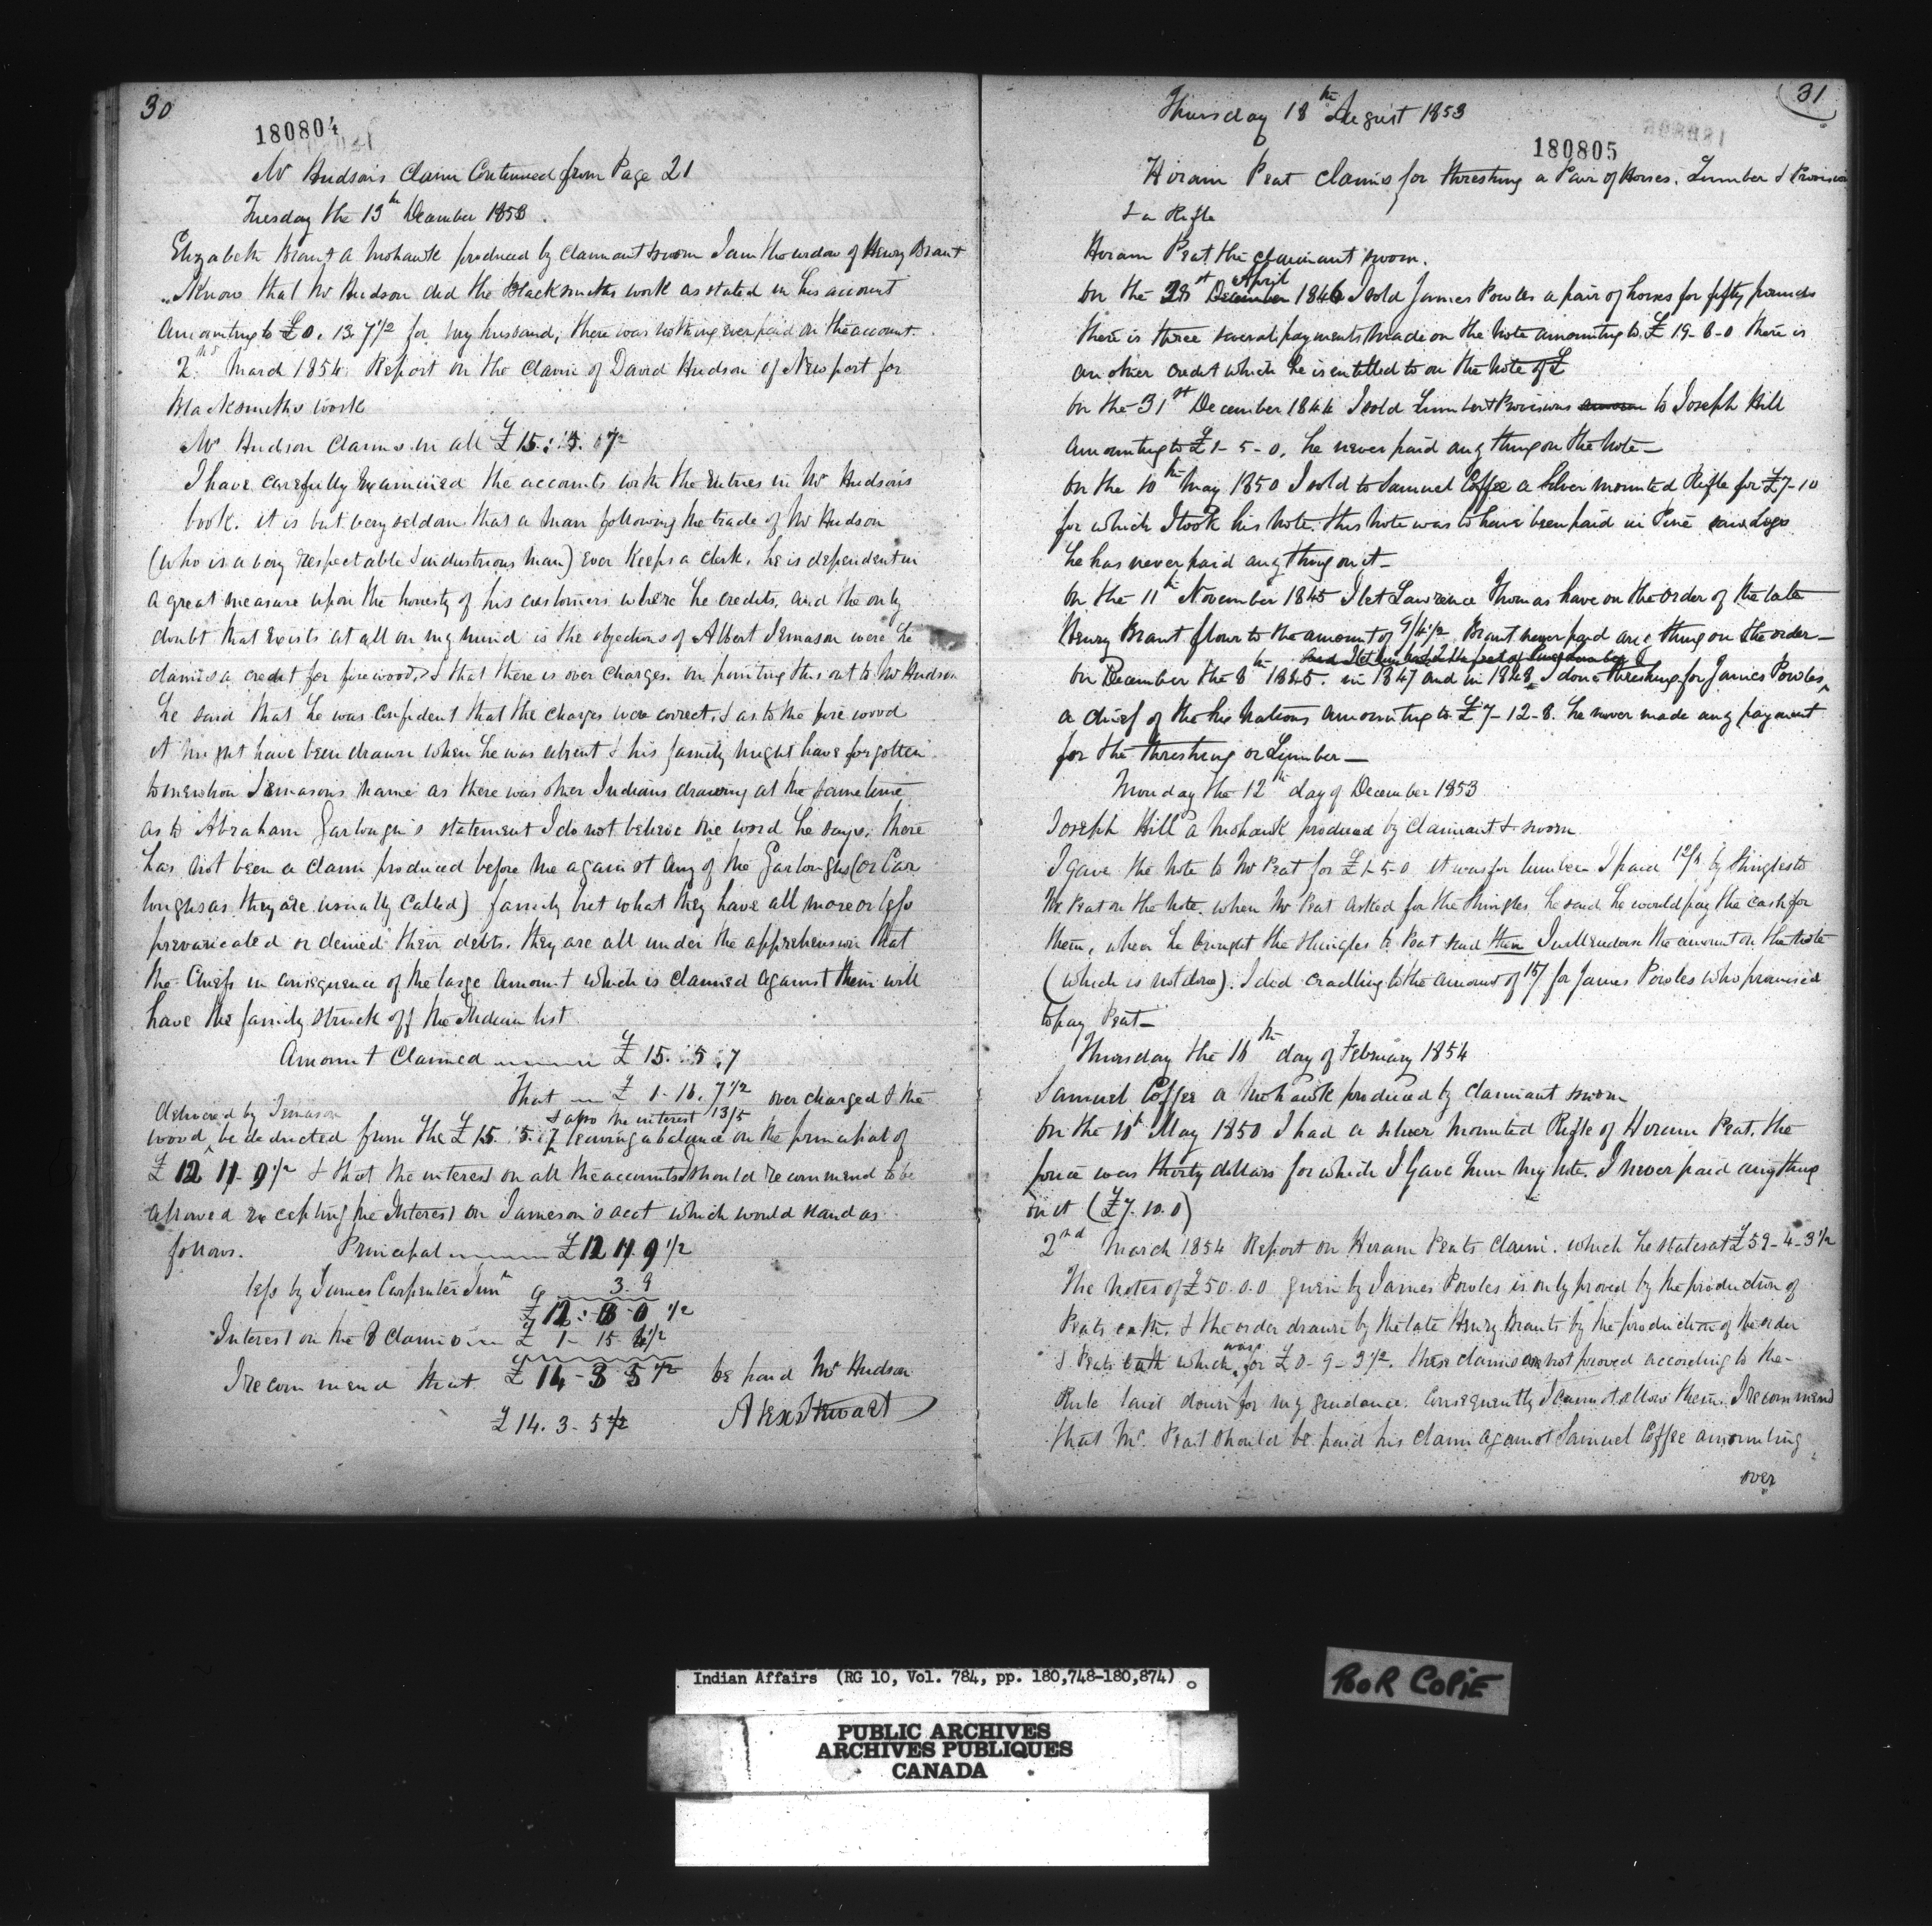 30
180804
Mr Hudson's Claim Continued from Page 21
Tuesday the 13th December 1853.
Elizabeth Brant a Mohawk produced by claimant sworn I am the widow of Henry Brant
I know that Mr Hudson did the Blacksmiths work as stated in his account
amounting to £0. 13. 7 1/2 for my husband, there was nothing ever paid on the account.
2nd March 1854. Report on the Claim of David Hudson of Newport for
Blacksmiths work
Mr Hudson Claims in all £15: 5. 7
I have carefully Examined the accounts with the Entries in Mr Hudson's
book. it is but very seldom that a man following the trade of Mr Hudson
(who is a very respectable & industrious man) ever keeps a clerk. he is dependent in
a great measure upon the honesty of his customers where he credits, and the only
doubt that Exists at all on my mind is the objections of Albert Jemason were he
claims a credit for fire wood, & that there is over charges. on pointing this out to Mr Hudson
he said that he was confident that the charges were correct, & as to the fire wood
it might have been drawn when he was absent & his family might have forgotten
to mention Jemasons name as there was other Indians drawing at the same time
as to Abraham Garlough's statement I do not believe one word he says. there
has not been a claim produced before me against any of the Garloughs (or Car
loughs as they are usually called) family but what they have all more or less
prevaricated or denied their debts. they are all under the apprehension that
the Chiefs in consequence of the large amount which is claimed against them will
have the family struck off the Indian list
Amount Claimed £15. 5. 7
That £ 1. 16. 7 1/2 over charged & the
delivered by Jemason & also the interest 13/5
wood, be deducted from the £15. 5. 7 leaving a balance on the principal of
£12 11. 9 1/2 & that the interest on all the accounts I should recommend to be
allowed excepting the Interest on Jameson's acct which would stand as
follows. Principal £12 11. 9 1/2
less by James Carpenter Junr 3. 9
£12: 8 0 1/2
Interest on the 8 Claims £ 1- 15
I recommend that £14- 3 5 1/2 be paid Mr Hudson
£14. 3- 5 1/2 Alex Stewart
31
Thursday 18th August 1853
180805
Hiram Peat claims for threshing a Pair of Horses. Lumber & Provision
& a Rifle
Hiram Peat the claimant sworn.
April
On the 28 December 1846 I sold James Powles a pair of horses for fifty pounds
there is three several payments made on the note amounting to £19-8-0 there is
another credit which he is entitled to on the note of £
On the 31st December 1844 I sold Lumber & Provisions to Joseph Hill
amounting to £1-5-0, he never paid any thing on the note—
On the 10th May 1850 I sold to Samuel Coffee a silver mounted Rifle for £7-10
for which I took his note. this note was to have been paid in Pine saw Logs
he has never paid any thing on it—
On the 11th November 1845 I let Lawrence Thomas have on the order of the late
Henry Brant flour to the amount of 9/4 1/2 Brant never paid any thing on the order—
on December the 8th 1845. in 1847 and in 1848 I done threshing for James Powles,
a chief of the Six Nations amounting to £7-12-8. he never made any payment
for the threshing or Lumber—
Monday the 12th day of December 1853
Joseph Hill a Mohawk produced by Claimant & sworn
I gave the note to Mr Peat for £1-5-0 it was for lumber I paid by shingles to
Mr Peat on the note. when Mr Peat asked for the shingles he said he would pay the cash for
them, when he brought the shingles to Peat said then I will endorse the amount on the note
(which is not done). I did cradling to the amount of 15/ for James Powles who promised
to pay Peat—
Thursday the 16th day of February 1854
Samuel Coffee a Mohawk produced by Claimant sworn
On the 10th May 1850 I had a silver mounted Rifle of Hiram Peat. the
price was thirty dollars for which I gave him my note. I never paid anything
on it (£7. 10. 0)
2nd March 1854 Report on Hiram Peats Claim. which he states at £59-4-3 1/2
The notes of £50.0.0 given by James Powles is only proved by the production of
Peats oath. & the order drawn by the late Henry Brants by the production of the order
was
& Peats oath which for £0-9-3 1/2. these claims are not proved according to the
Rule laid down for my guidance. Consequently I cannot allow them. I recommend
that Mr. Peat should be paid his claim against Samuel Coffee amounting
over
Indian Affairs (RG 10, Vol. 784, pp. 180,748-180,874)
POOR COPIE
PUBLIC ARCHIVES
ARCHIVES PUBLIQUES
CANADA